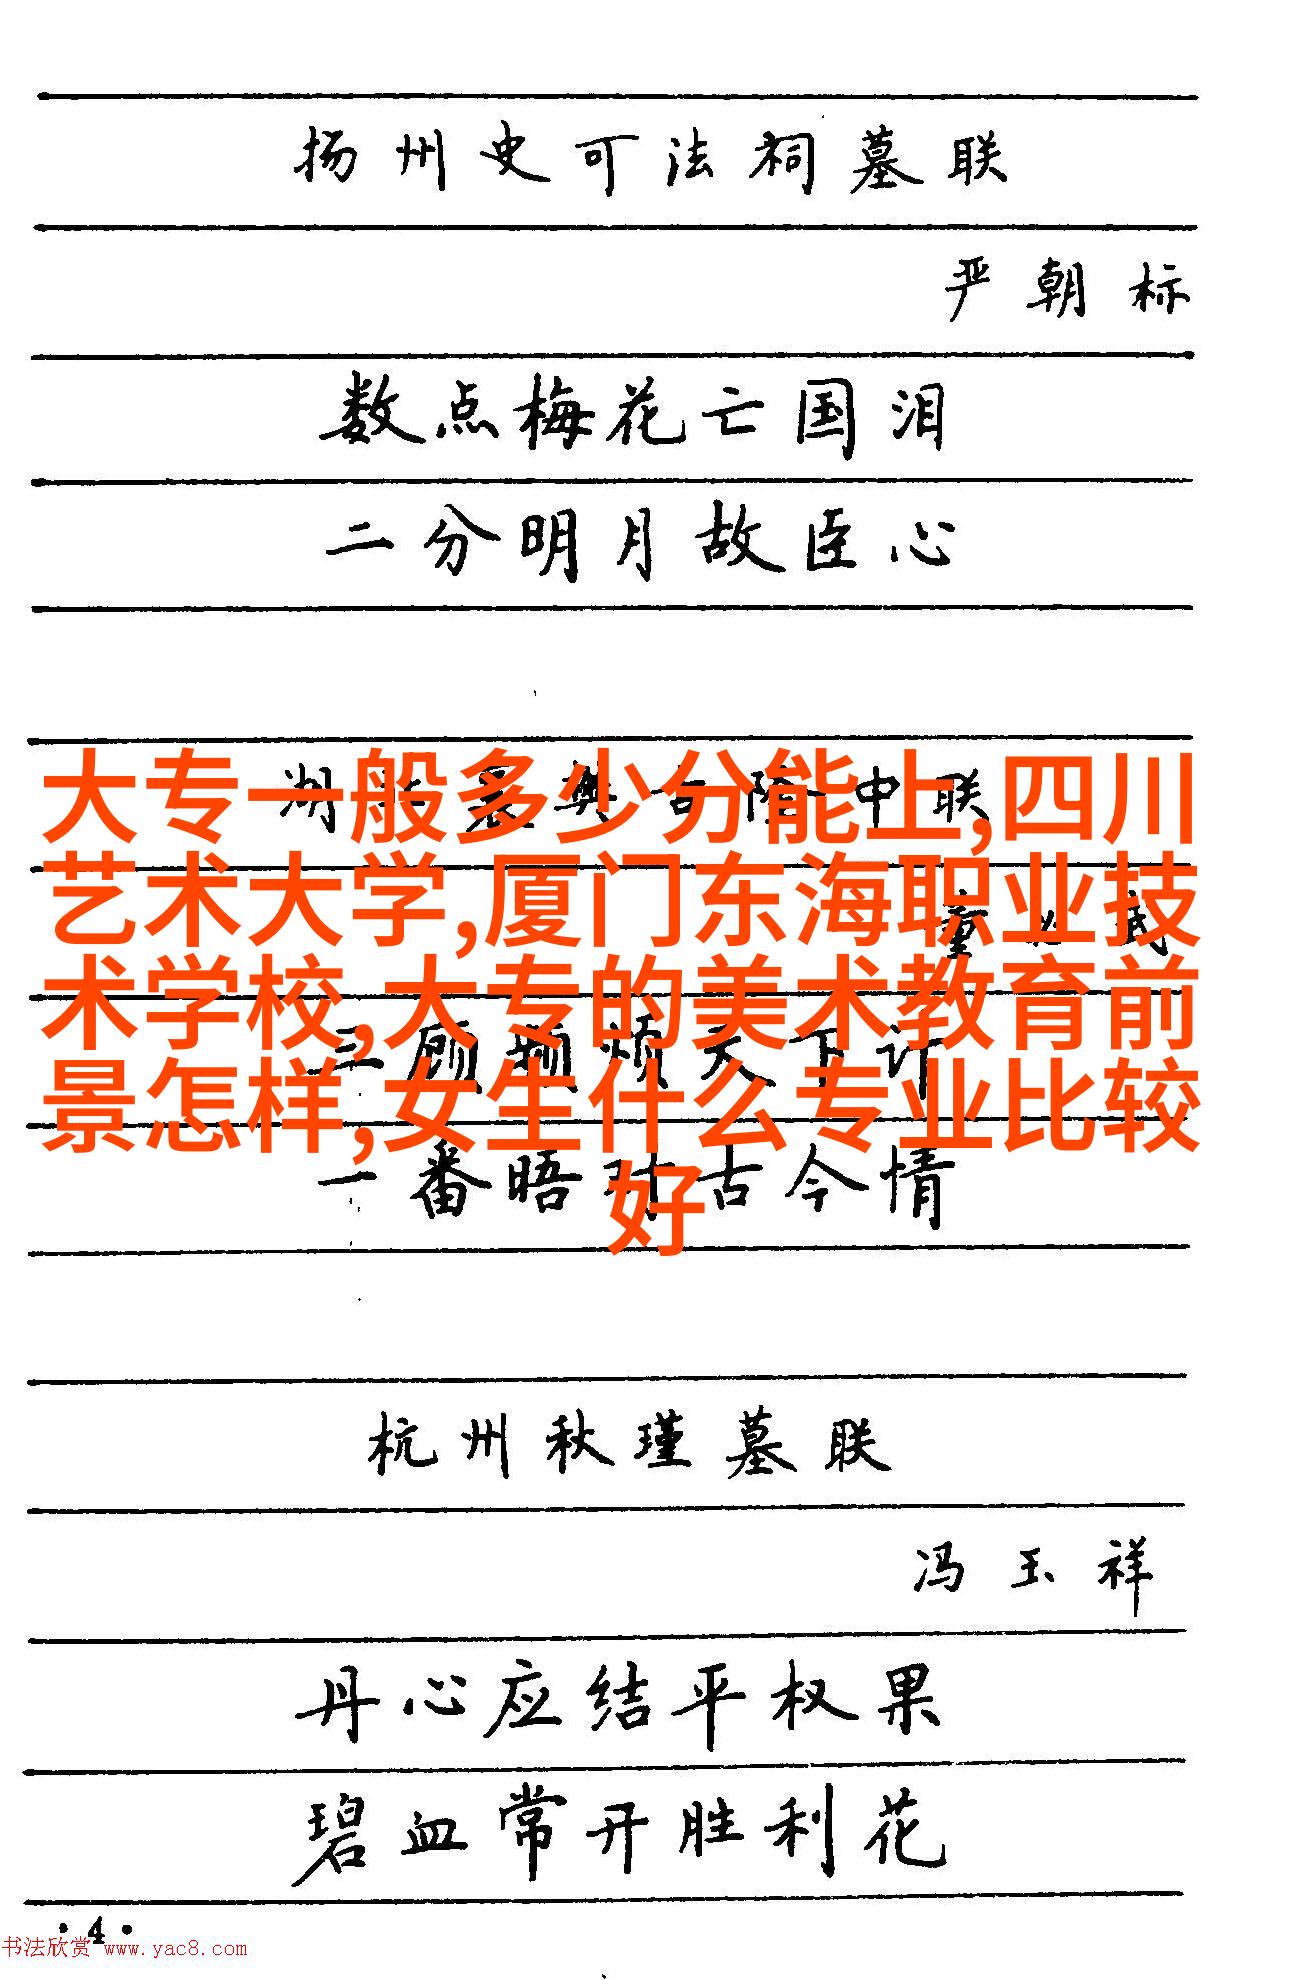 扬州史可法祠墓联
严朝标
数点梅花亡国泪
二分明月故臣心
大专一般多少分能上,四川
艺术大学,厦门东海职业技
术学校,大专的美术教育前
景怎样,女生什么专业比较
好
三顾频烦天下计
一番晤对古今情
杭州秋瑾墓联
冯玉祥
丹心应结平权果
碧血常开胜利花
·4·
书法欣赏 www.yac8.com